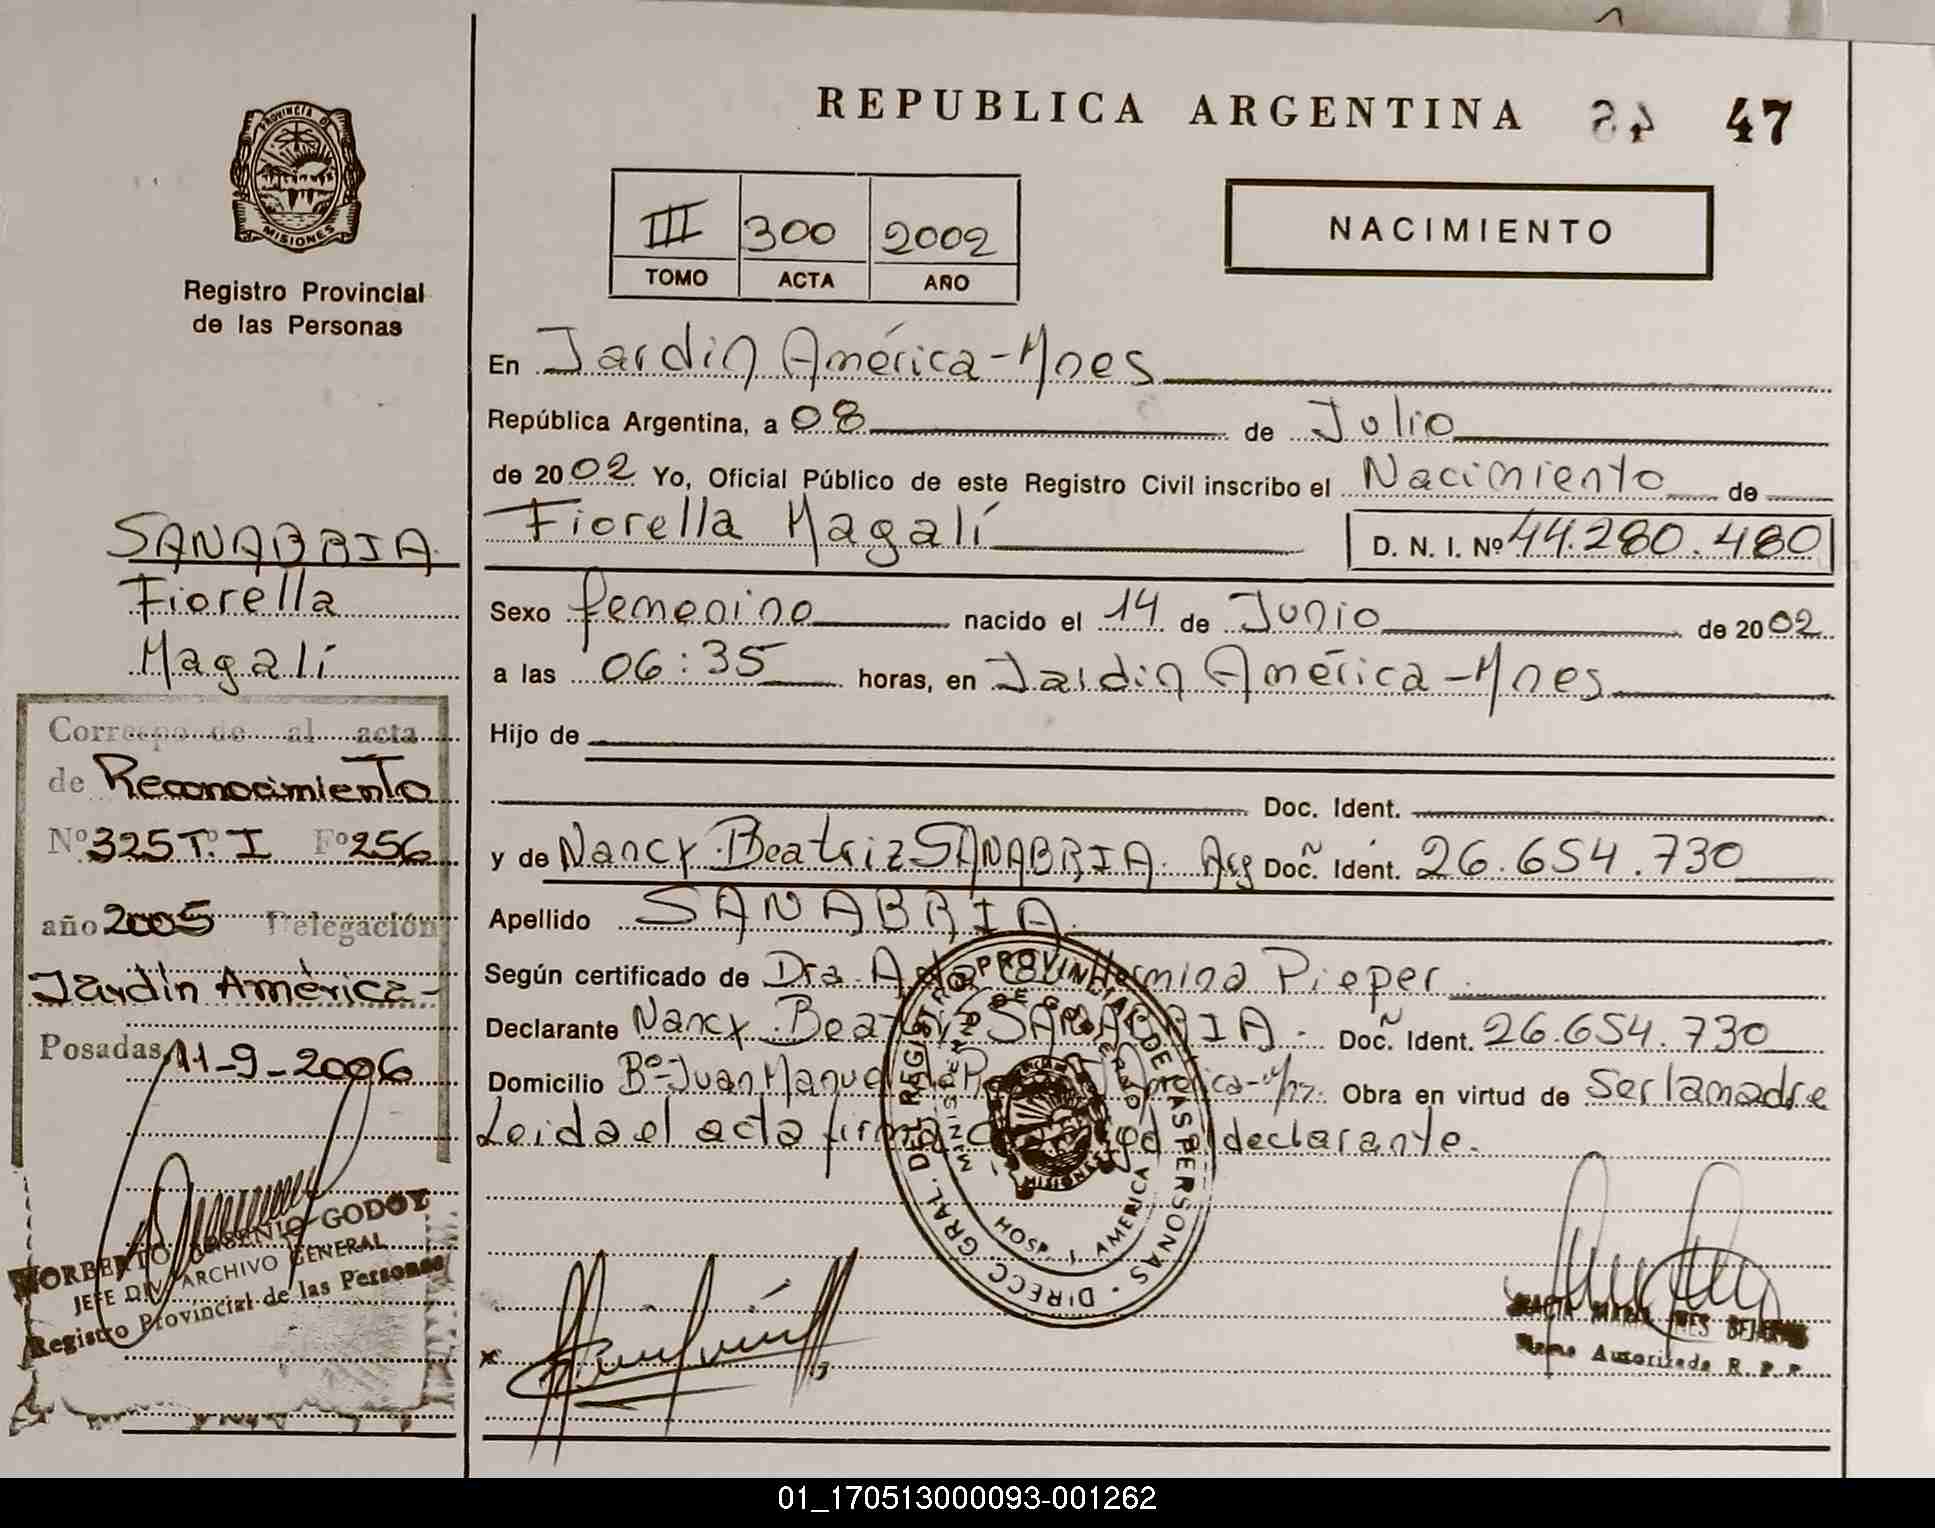 REPUBLICA ARGENTINA 47
PROVINCIA DE
MISIONES
Registro Provincial
de las Personas
III 300 2002
TOMO ACTA AÑO
NACIMIENTO
En Jardin América-Mnes
República Argentina, a 08 de Julio
de 2002 Yo, Oficial Público de este Registro Civil inscribo el Nacimiento de
Fiorella Magalí D. N. I. Nº 44.280.480
Sexo femenino nacido el 14 de Junio de 2002
a las 06:35 horas, en Jardin América-Mnes
Hijo de
Doc. Ident.
y de Nancy Beatriz SANABRIA. Arg Doc. Ident. 26.654.730
Apellido SANABRIA.
Según certificado de Dra. Hermina Pieper
Declarante Nancy Beatriz SANABRIA. Doc. Ident. 26.654.730
Domicilio Bº Juan Manuel de América- Obra en virtud de ser la madre
Leida el acta firma declarante.
SANABRIA
Fiorella
Magalí
Corresponde al acta
de Reconocimiento
Nº 325 Tº. I Fº 256
año 2005 Delegación
Jardín América-
Posadas, 11-9-2006
NORBERTO GODOY
JEFE DIV. ARCHIVO GENERAL
Registro Provincial de las Personas
DIRECC. GRAL. DEL REGISTRO PROVINCIAL DE LAS PERSONAS
MINISTERIO DE GOBIERNO
MISIONES
HOSP. J. AMERICA
x
INES
Autorizada R. P. P.
01_170513000093-001262